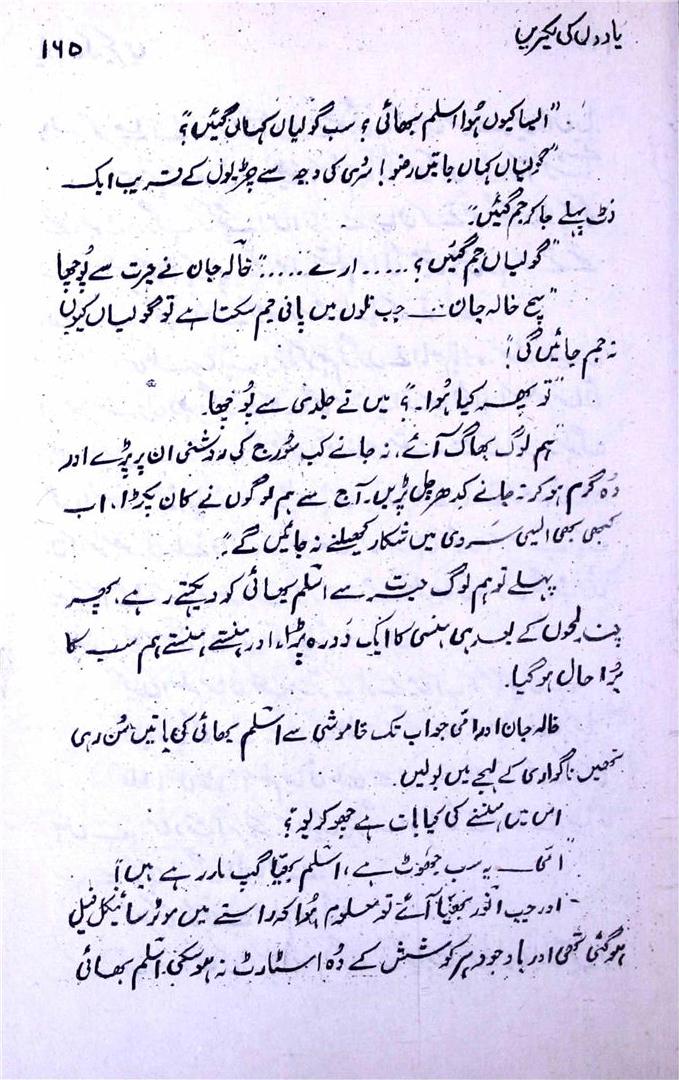 یادوں کی لکیریں
۱۶۵
"ایسا کیوں ہُوا اسلم بھائی؟ سب گولیاں کہاں گئیں؟"
"گولیاں کہاں جاتیں رضو! سردی کی وجہ سے چڑیلوں کے قریب ایک
فٹ پہلے جا کر جم گئیں۔"
"گولیاں جم گئیں؟ ..... ارے ....." خالہ جان نے حیرت سے پُوچھا
"سچ خالہ جان ـــ جب نلوں میں پانی جم سکتا ہے تو گولیاں کیوں
نہ جم جائیں گی!"
"تو پھر کیا ہُوا۔؟" میں نے جلدی سے پُوچھا۔
"ہم لوگ بھاگ آئے، نہ جانے کب سُورج کی روشنی ان پر پڑے اور
وُہ گرم ہو کر نہ جانے کدھر چل پڑیں۔ آج سے ہم لوگوں نے کان پکڑا، اب
کبھی بھی ایسی سردی میں شکار کھیلنے نہ جائیں گے۔"
پہلے تو ہم لوگ حیرت سے اسلم بھائی کو دیکھتے رہے، پھر
چند لمحوں کے بعد ہی ہنسی کا ایک دَورہ پڑا، اور ہنستے ہنستے ہم سب کا
بُرا حال ہو گیا۔
خالہ جان اور امی جو اب تک خاموشی سے اسلم بھائی کی باتیں سُن رہی
تھیں ناگواری کے لہجے میں بولیں۔
"اس میں ہنسنے کی کیا بات ہے چھوکریو؟"
"امی ـــ یہ سب جھوٹ ہے، اسلم بھیّا گپ مار رہے ہیں!"
اور جب انور بھیّا آئے تو معلوم ہُوا کہ راستے میں موٹر سائیکل فیل
ہو گئی تھی اور باوجود ہر کوشش کے وُہ اسٹارٹ نہ ہو سکی۔ اسلم بھائی